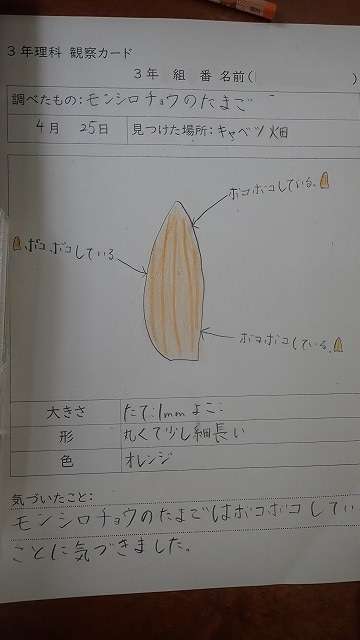 3年理科 観察カード
3年 組 番 名前( )
調べたもの:モンシロチョウのたまご
4月 25日 見つけた場所:キャベツ畑
ボコボコしている。
ボコボコしている
ボコボコしている。
大きさ たて:1mm よこ:
形 丸くて少し細長い
色 オレンジ
気づいたこと:
モンシロチョウのたまごはボコボコしてい
ことに気づきました。